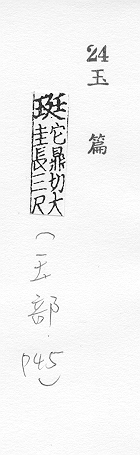 24
玉篇
珽它鼎切大
圭長三尺
(玉部.
P45)